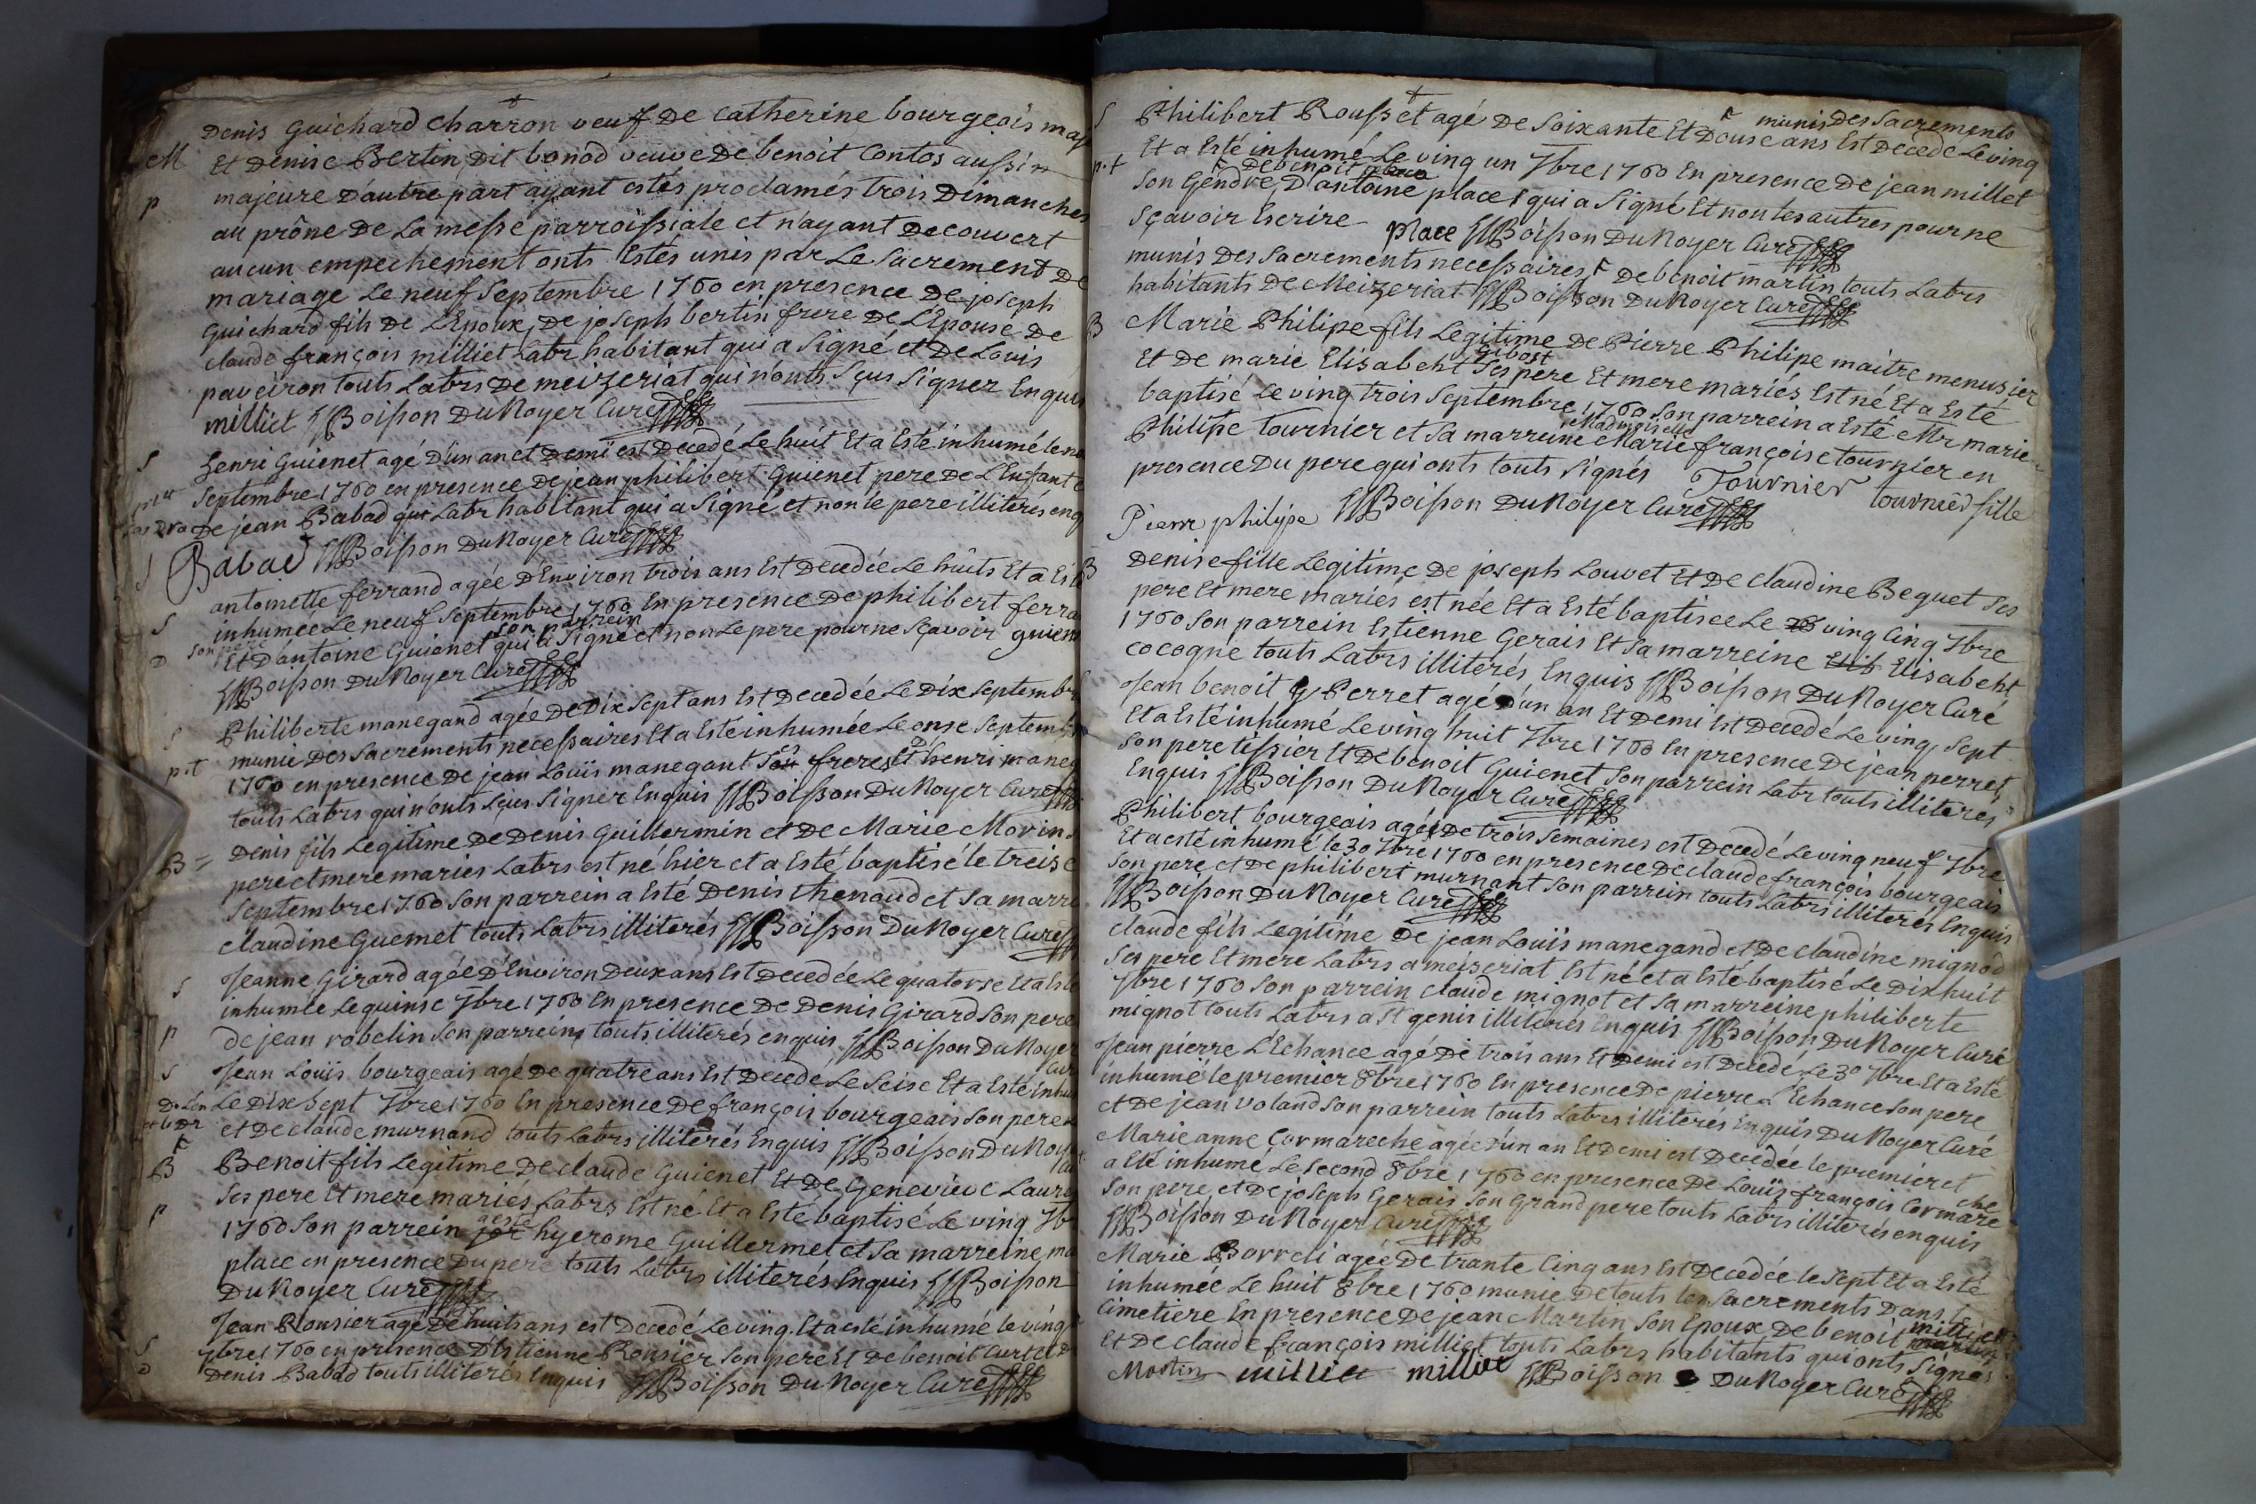 Denis Guichard Charron veuf De Catherine bourgeois
M Et Denise Bertin Dit bonod veuve De benoit Contos aussi
p majeure Dautre part ayant estés proclamés trois Dimanches
au prône De La messe parroissiale et n'ayant Decouvert
aucun empechement onts Estés unis par Le Sacrement De
mariage Le neuf Septembre 1760 en presence De joseph
Guichard fils De L'Epoux, De joseph bertin frere De L'Epouse De
claude françois milliet Labr habitant qui a Signé et De Louis
paveiron touts Labrs De meizeriat qui n'onts Sçus Signer Enquis
milliet Boisson Du Noyer Curé
S henri Guienet agé D'un an et Demi est Decedé Le huit Et a Esté inhumé le
Septembre 1760 en presence De jean philibert Guienet pere De L'Enfant
De jean Babad qui Labr habitant qui a Signé et non le pere illiterés enq
Babad Boisson Du Noyer Curé
antoinette ferrand agée D'Environ trois ans Est Decedée Le huits Et a Esté
S inhumée Le neuf Septembre 1760 En presence De philibert ferra
D son pere Et D'antoine Guienet son parrein qui a Signé et non Le pere pour ne Sçavoir guien
Boisson Du Noyer Curé
S Philiberte manegand agée De Dix Sept ans Est Decedée Le Dix Septembre
p.t munie Des Sacrements necessaires Et a Esté inhumée Le onse Septemb
1760 en presence De jean Louïs manegant freres Et D'henri maneg
touts Labrs qui n'onts Sçus Signer Enquis Boisson Du Noyer Curé
B = Denis fils Legitime De Denis Guillermin et De Marie Morin
pere et mere mariés Labrs est né hier et a Esté baptisé le treise
Septembre 1760 Son parrein a Esté Denis thenaud et Sa marre
claudine Guemet touts Labrs illiterés Boisson Du Noyer Curé
S Jeanne Girard agée D'Environ Deux ans Est Decedée Le quatorse Et a Esté
inhumée Le quinse 7bre 1760 En presence De Denis Girard Son pere
p De jean robelin Son parrein, touts illiterés enquis, Boisson Du Noyer
S Jean Louïs bourgeais agé De quatre ans Est Decedé Le Seise Et a Esté inhu
Le Dix Sept 7bre 1760 En presence De françois bourgeais Son pere
et De claude murnand touts Labrs illiterés Enquis Boisson Du Noy
B Benoit fils Legitime De claude Guienet Et De Genevieve Laure
Ses pere Et mere mariés Labrs Est né Et a Esté baptisé Le ving 7b
p 1760 Son parrein a esté hyerome Guillermet et Sa marreine, ma
place en presence Du pere touts Labrs illiterés Enquis Boisson
Du Noyer Curé
Jean Rousier agé De huits ans est Decedé Le ving Et a esté inhumé le ving
S 7bre 1760 en presence D'Estienne Rousier Son pere Et De benoit Curtet
D Denis Babad touts illiterés Enquis Boisson Du Noyer Curé
S Philibert Rousset agé De Soixante Et Douse ans munis Des Sacrements Est Decedé Le ving
p.t Et a Esté inhumé Le ving un 7bre 1760 En presence De jean millet
Son Gendre, D'antoine place qui a Signé Et non les autres pour ne
Sçavoir Escrire place Boisson Du Noyer Curé
munis Des Sacrements necessaires De benoit martin touts Labrs
habitants De Meizeriat Boisson Du Noyer Curé
B Marie Philipe fils Legitime De Pierre Philipe maitre menusier
Et De marie Elisabeht Ses pere Et mere mariés Est né Et a Esté
baptisé Le ving trois Septembre 1760 Son parrein a Esté Mr marie
Philipe Tournier et Sa marreine Mademoiselle Marie françoise Tournier en
presence Du pere qui onts touts Signés Tournier tournier fille
Pierre philipe Boisson Du Noyer Curé
B Denise fille Legitime De joseph Louvet Et De claudine Beguet Ses
pere Et mere mariés est née Et a Esté baptisée Le ving Cinq 7bre
1760 Son parrein Estienne Gerais Et Sa marreine Elisabeht
cocogne touts Labrs illiterés, Enquis Boisson Du Noyer Curé
Jean benoit Perret agé D'un an Et Demi Est Decedé Le ving Sept
Et a Esté inhumé Le ving huit 7bre 1760 En presence De jean perret
Son pere tissier Et De benoit Guienet Son parrein Labr touts illiterés
Enquis Boisson Du Noyer Curé
Philibert bourgeais agé De trois Semaines est Decedé Le ving neuf 7bre
Et a esté inhumé le 30 7bre 1760 en presence De claude françois bourgeais
Son pere et De philibert murnant Son parrein touts Labrs illiterés Enquis
Boisson Du Noyer Curé
claude fils Legitime De jean Louïs manegand et De claudine mignod
Ses pere Et mere Labrs a meizeriat Est né et a Esté baptisé Le Dix huit
7bre 1760 Son parrein claude mignot et Sa marreine philiberte
mignot touts Labrs a St genis illiterés Enquis Boisson Du Noyer Curé
Jean pierre L'Echance agé De trois ans Et Demi est Decedé Le 30 7bre Et a Esté
inhumé le premier 8bre 1760 En presence De pierre L'Echance Son pere
et De jean voland Son parrein touts Labrs illiterés Enquis Du Noyer Curé
Marie anne Cormareche agée D'un an Et Demi est Decedée le premier et
a Esté inhumé Le Second 8bre 1760 en presence De Louïs françois Cormareche
Son pere et De joseph Gerais Son Grand pere touts Labrs illiterés enquis
Boisson Du Noyer Curé
Marie Borreli agée De trante Cinq ans Est Decedée le Sept Et a Esté
inhumée Le huit 8bre 1760 munie De touts les Sacrements Dans le
Cimetiere En presence De jean Martin Son Epoux De benoit milliet
Et De claude françois milliet touts Labrs habitants qui onts Signés
Martin milliet milliet Boisson Du Noyer Curé